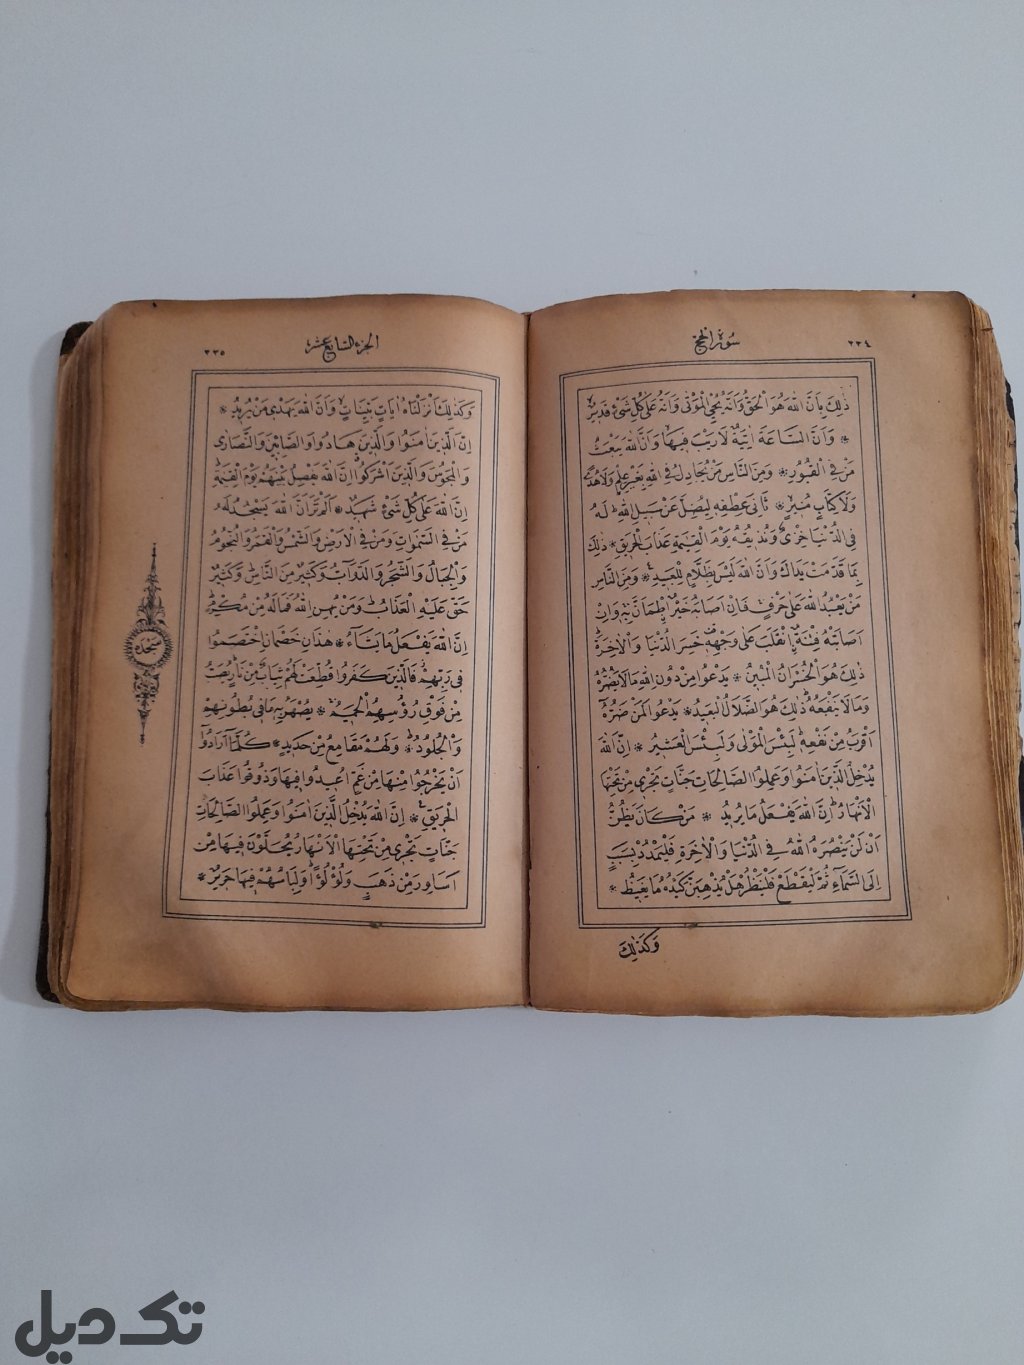 ٣٣٤
سورة الحج
ذٰلِكَ بِاَنَّ اللّٰهَ هُوَ الْحَقُّ وَاَنَّهُ يُحْيِى الْمَوْتٰى وَاَنَّهُ عَلٰى كُلِّ شَىْءٍ قَدِيرٌ
* وَاَنَّ السَّاعَةَ اٰتِيَةٌ لَا رَيْبَ فِيهَا وَاَنَّ اللّٰهَ يَبْعَثُ
مَنْ فِى الْقُبُورِ * وَمِنَ النَّاسِ مَنْ يُجَادِلُ فِى اللّٰهِ بِغَيْرِ عِلْمٍ وَلَا هُدًى
وَلَا كِتَابٍ مُنِيرٍ * ثَانِىَ عِطْفِهِ لِيُضِلَّ عَنْ سَبِيلِ اللّٰهِ لَهُ
فِى الدُّنْيَا خِزْىٌ وَنُذِيقُهُ يَوْمَ الْقِيٰمَةِ عَذَابَ الْحَرِيقِ * ذٰلِكَ
بِمَا قَدَّمَتْ يَدَاكَ وَاَنَّ اللّٰهَ لَيْسَ بِظَلَّامٍ لِلْعَبِيدِ * وَمِنَ النَّاسِ
مَنْ يَعْبُدُ اللّٰهَ عَلٰى حَرْفٍ فَاِنْ اَصَابَهُ خَيْرٌ اِطْمَاَنَّ بِهِ وَاِنْ
اَصَابَتْهُ فِتْنَةٌ اِنْقَلَبَ عَلٰى وَجْهِهِ خَسِرَ الدُّنْيَا وَالْاٰخِرَةَ
ذٰلِكَ هُوَ الْخُسْرَانُ الْمُبِينُ * يَدْعُوا مِنْ دُونِ اللّٰهِ مَا لَا يَضُرُّهُ
وَمَا لَا يَنْفَعُهُ ذٰلِكَ هُوَ الضَّلَالُ الْبَعِيدُ * يَدْعُوا لَمَنْ ضَرُّهُ
اَقْرَبُ مِنْ نَفْعِهِ لَبِئْسَ الْمَوْلٰى وَلَبِئْسَ الْعَشِيرُ * اِنَّ اللّٰهَ
يُدْخِلُ الَّذِينَ اٰمَنُوا وَعَمِلُوا الصَّالِحَاتِ جَنَّاتٍ تَجْرِى مِنْ تَحْتِهَا
الْاَنْهَارُ اِنَّ اللّٰهَ يَفْعَلُ مَا يُرِيدُ * مَنْ كَانَ يَظُنُّ
اَنْ لَنْ يَنْصُرَهُ اللّٰهُ فِى الدُّنْيَا وَالْاٰخِرَةِ فَلْيَمْدُدْ بِسَبَبٍ
اِلَى السَّمَاءِ ثُمَّ لْيَقْطَعْ فَلْيَنْظُرْ هَلْ يُذْهِبَنَّ كَيْدُهُ مَا يَغِيظُ *
وَكَذٰلِكَ
الجزء السابع عشر
٣٣٥
وَكَذٰلِكَ اَنْزَلْنَاهُ اٰيَاتٍ بَيِّنَاتٍ وَاَنَّ اللّٰهَ يَهْدِى مَنْ يُرِيدُ *
اِنَّ الَّذِينَ اٰمَنُوا وَالَّذِينَ هَادُوا وَالصَّابِئِينَ وَالنَّصَارٰى
وَالْمَجُوسَ وَالَّذِينَ اَشْرَكُوا اِنَّ اللّٰهَ يَفْصِلُ بَيْنَهُمْ يَوْمَ الْقِيٰمَةِ
اِنَّ اللّٰهَ عَلٰى كُلِّ شَىْءٍ شَهِيدٌ * اَلَمْ تَرَ اَنَّ اللّٰهَ يَسْجُدُ لَهُ
مَنْ فِى السَّمٰوَاتِ وَمَنْ فِى الْاَرْضِ وَالشَّمْسُ وَالْقَمَرُ وَالنُّجُومُ
وَالْجِبَالُ وَالشَّجَرُ وَالدَّوَابُّ وَكَثِيرٌ مِنَ النَّاسِ وَكَثِيرٌ
حَقَّ عَلَيْهِ الْعَذَابُ وَمَنْ يُهِنِ اللّٰهُ فَمَا لَهُ مِنْ مُكْرِمٍ
اِنَّ اللّٰهَ يَفْعَلُ مَا يَشَاءُ * هٰذَانِ خَصْمَانِ اخْتَصَمُوا
فِى رَبِّهِمْ فَالَّذِينَ كَفَرُوا قُطِّعَتْ لَهُمْ ثِيَابٌ مِنْ نَارٍ يُصَبُّ
مِنْ فَوْقِ رُؤُسِهِمُ الْحَمِيمُ * يُصْهَرُ بِهِ مَا فِى بُطُونِهِمْ
وَالْجُلُودُ * وَلَهُمْ مَقَامِعُ مِنْ حَدِيدٍ * كُلَّمَا اَرَادُوا
اَنْ يَخْرُجُوا مِنْهَا مِنْ غَمٍّ اُعِيدُوا فِيهَا وَذُوقُوا عَذَابَ
الْحَرِيقِ * اِنَّ اللّٰهَ يُدْخِلُ الَّذِينَ اٰمَنُوا وَعَمِلُوا الصَّالِحَاتِ
جَنَّاتٍ تَجْرِى مِنْ تَحْتِهَا الْاَنْهَارُ يُحَلَّوْنَ فِيهَا مِنْ
اَسَاوِرَ مِنْ ذَهَبٍ وَلُؤْلُؤًا وَلِبَاسُهُمْ فِيهَا حَرِيرٌ *
سجده
تک دیل